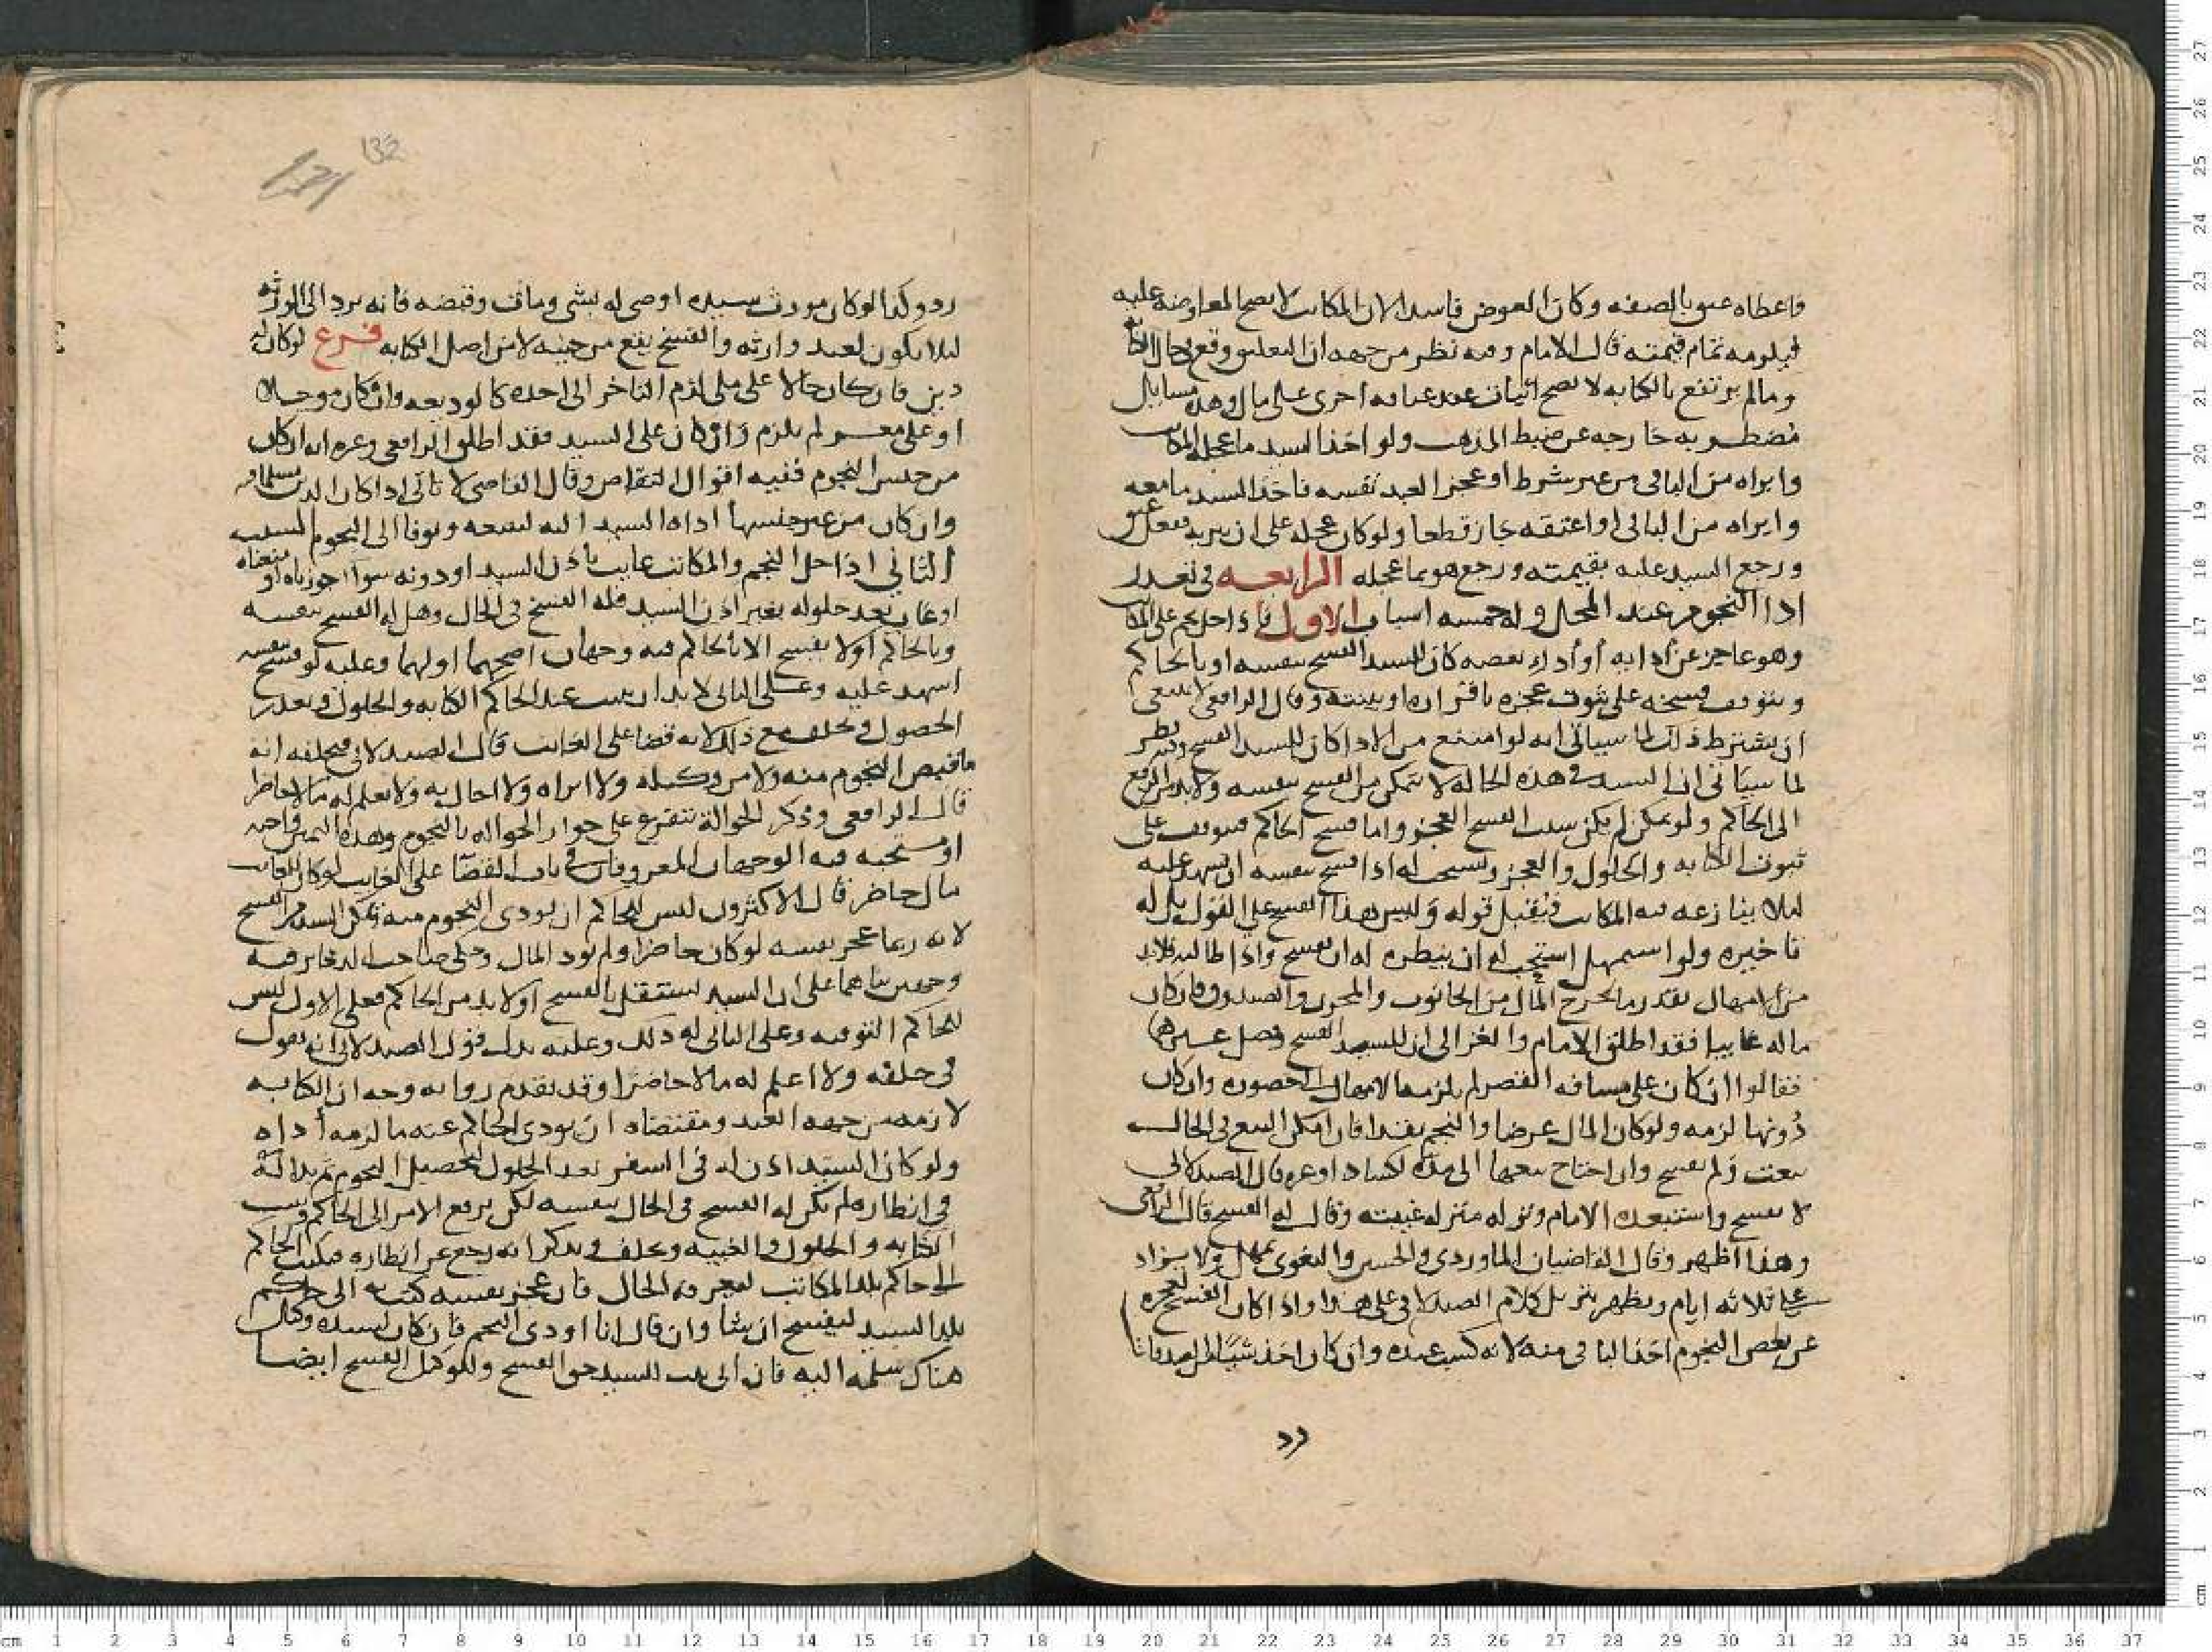 فاعطاه عتق بالصفه وكان العوض فاسدا لان المكاتب لا يصح المعاوضه عليه
فيلزمه تمام قيمته قال الامام وفيه نظر من جهه ان التعليق وقع في حال الكتابه
وما لم يرتفع بالكتابه لا يصح اثبات عند عتاقه اخرى على مال وهذه مسايل
مضطربه خارجه عن ضبط المذهب ولو اخذ السيد ما عجله المكاتب
وابراه من الباقي من غير شرط او عجز العبد نفسه فاخذ السيد ما معه
وابراه من الباقي او اعتقه جاز قطعا ولو كان عجله على ان يبريه ففعل عتق
ورجع السيد عليه بقيمته ورجع هو بما عجله الرابعه في تعذر
اداء النجوم عند المحل وله خمسه اسباب الاول فاذا حل نجم على المكاتب
وهو عاجز عن ادايه او اداء بعضه كان للسيد الفسخ بنفسه او بالحاكم
ويتوقف فسخه على ثبوت عجزه باقراره او ببينته وقال الرافعي لا ينبغي
ان يشترط ذلك لما سياتي انه لو امتنع من الادا كان للسيد الفسخ وفيه نظر
لما سياتي ان السيد في هذه الحاله لا يتمكن من الفسخ بنفسه ولا بد من الرفع
الى الحاكم ولو تمكن لم يكن سبب الفسخ العجز واما فسخ الحاكم فيتوقف على
ثبوت الكتابه والحلول والعجز ويستحب له اذا فسخ بنفسه ان يشهد عليه
ليلا ينازعه فيه المكاتب فيقبل قوله وليس هذا الفسخ على الفور بل له
تاخيره ولو استمهل استحب له ان ينظره له ان يفسخ واذا طالبه فلا بد
من الامهال بقدر ما يخرج المال من الحانوت والمخزن والصندوق فان كان
ماله غايبا فقد اطلق الامام والغزالي ان للسيد الفسخ وفصل غيرهما
فقالوا ان كان على مسافه القصر لم يلزمه الامهال لحضوره وان كان
دونها لزمه ولو كان المال عرضا والنجم نقدا فان امكن البيع في الحال
بيعت ولم يفسخ وان احتاج بيعها الى مده لكساد او غيره قال الصيدلاني
لا يفسخ واستبعده الامام ونزله منزله غيبته وقال له الفسخ قال الرافعي
وهذا اظهر وقال القاضيان الماوردي والحسين والبغوي يمهل ولا يزاد
على ثلاثه ايام ويظهر تنزيل كلام الصيدلاني على هذا واذا كان الفسخ لعجزه
عن بعض النجوم اخذ الباقي منه لانه كسب عبده وان كان اخذ شيئا
رد وكذا لو كان مورث سيده اوصى له بشي ومات وقبضه فانه يرد الى الورثه
ليلا يكون لعبد وارثه والفسخ يقع من حينه لا من اصل الكتابه فرع لو كان له
دين فان كان حالا على ملي لزم التاخر الى اخذه كالوديعه وان كان موجلا
او على معسر لم يلزم وان كان على السيد فقد اطلق الرافعي وغيره انه ان كان
من جنس النجوم ففيه اقوال التقاص وقال القاضي لا تاتي اذا كان الدين سلما
وان كان من غير جنسها اداه السيد اليه لبيعه ويوفا الى النجوم السبب
الثاني اذا حل النجم والمكاتب غايب باذن السيد او دونه سواء جوزناه او منعناه
او غاب بعد حلوله بغير اذن السيد فله الفسخ في الحال وهل له الفسخ بنفسه
وبالحاكم او لا يفسخ الا بالحاكم فيه وجهان اصحهما اولهما وعليه لو فسخ بنفسه
اشهد عليه وعلى الثاني لا بد ان يثبت عند الحاكم الكتابه والحلول وتعذر
الحصول ويحلف مع ذلك لانه قضا على الغايب قال الصيدلاني فيحلفه انه
ما قبض النجوم منه ولا من وكيله ولا ابراه ولا احال به ولا يعلم له مالا حاضرا
قال الرافعي وذكر الحوالة تتفرع على جواز الحواله بالنجوم وهذه اليمين واجبه
او مستحبه فيه الوجهان المعروفان في باب القضا على الغايب ولو كان للغايب
مال حاضر قال الاكثرون ليس للحاكم ان يودي النجوم منه ويمكن السيد من الفسخ
لانه ربما عجز نفسه لو كان حاضرا ولم يود المال وحكى صاحب الذخاير فيه
وجهين بناهما على ان السيد يستقل بالفسخ او لا بد من الحاكم فعلى الاول ليس
للحاكم التوفيه وعلى الثاني له ذلك وعليه يدل قول الصيدلاني انه يقول
في حلفه ولا اعلم له مالا حاضرا وقد تقدم روايه وجه ان الكتابه
لازمه من جهه العبد ومقتضاه ان يودي الحاكم عنه ما لزمه اداه
ولو كان السيد اذن له في السفر بعد الحلول لتحصيل النجوم ثم بدا له
في انظاره لم يكن له الفسخ في الحال بنفسه لكن يرفع الامر الى الحاكم ويثبت
الكتابه والحلول والغيبه ويحلف ويذكر انه رجع عن انظاره فيكتب الحاكم
الى حاكم بلد المكاتب ليعرفه الحال فان عجز نفسه كتب به الى حاكم
بلد السيد ليفسخ ان شا وان قال انا اودي النجم فان كان لسيده وكيل
هناك سلمه اليه فان ابى ثبت للسيد حق الفسخ وللوكيل الفسخ ايضا
132